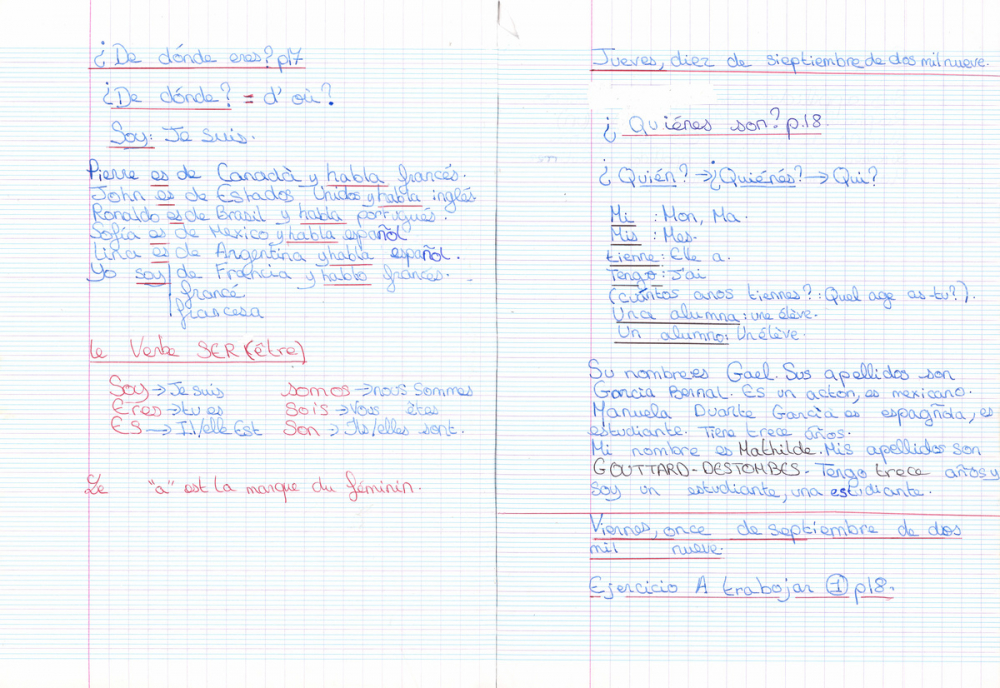 ¿De dónde eres? p17
¿De dónde? = d'où?
Soy: Je suis.
Pierre es de Canadà y habla francés.
John es de Estados Unidos y habla inglés
Ronaldo es de Brasil y habla portugués.
Sofía es de Mexico y habla español
Lina es de Argentina y habla español.
Yo soy de Francia y hablo francés.
francé
francesa
Le Verbe SER (être)
Soy → Je suis somos → nous sommes
Eres → tu es Sois → Vous êtes
ES → Il/elle Est Son → Ils/elles sont.
Le "a" est la marque du féminin.
Jueves, diez de sieptiembre de dos mil nueve.
¿Quiénes son? p.18
¿Quién? → ¿Quiénés? → Qui?
Mi : Mon, Ma.
Mis : Mes.
tienne : Elle a.
Tengo : J'ai
(cuántos anos tiennes? : Quel age as-tu?).
Una alumna : une élève.
Un alumno : Un élève.
Su nombre es Gael. Sus apellidos son
Garcia Bernal. Es un actor, es mexicano.
Manuela Duarte Garcìa es espagñola, es
estudiante. Tiene trece años.
Mi nombre es Mathilde. Mis apellidos son
GOUTTARD-DESTOMBES. Tengo trece años y
soy un estudiante, una estidiante.
Viernes, once de septiembre de dos
mil nueve.
Ejercicio A trabajar 1 p18.